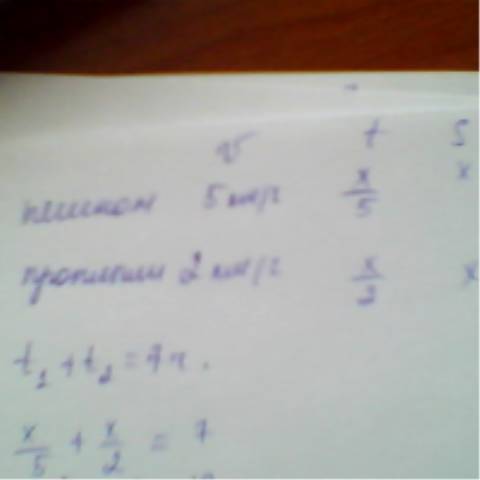 v t S
пешком 5 км/ч x/5 x
проплыли 2 км/ч x/2 x
t₁ + t₂ = 7ч.
x/5 + x/2 = 7